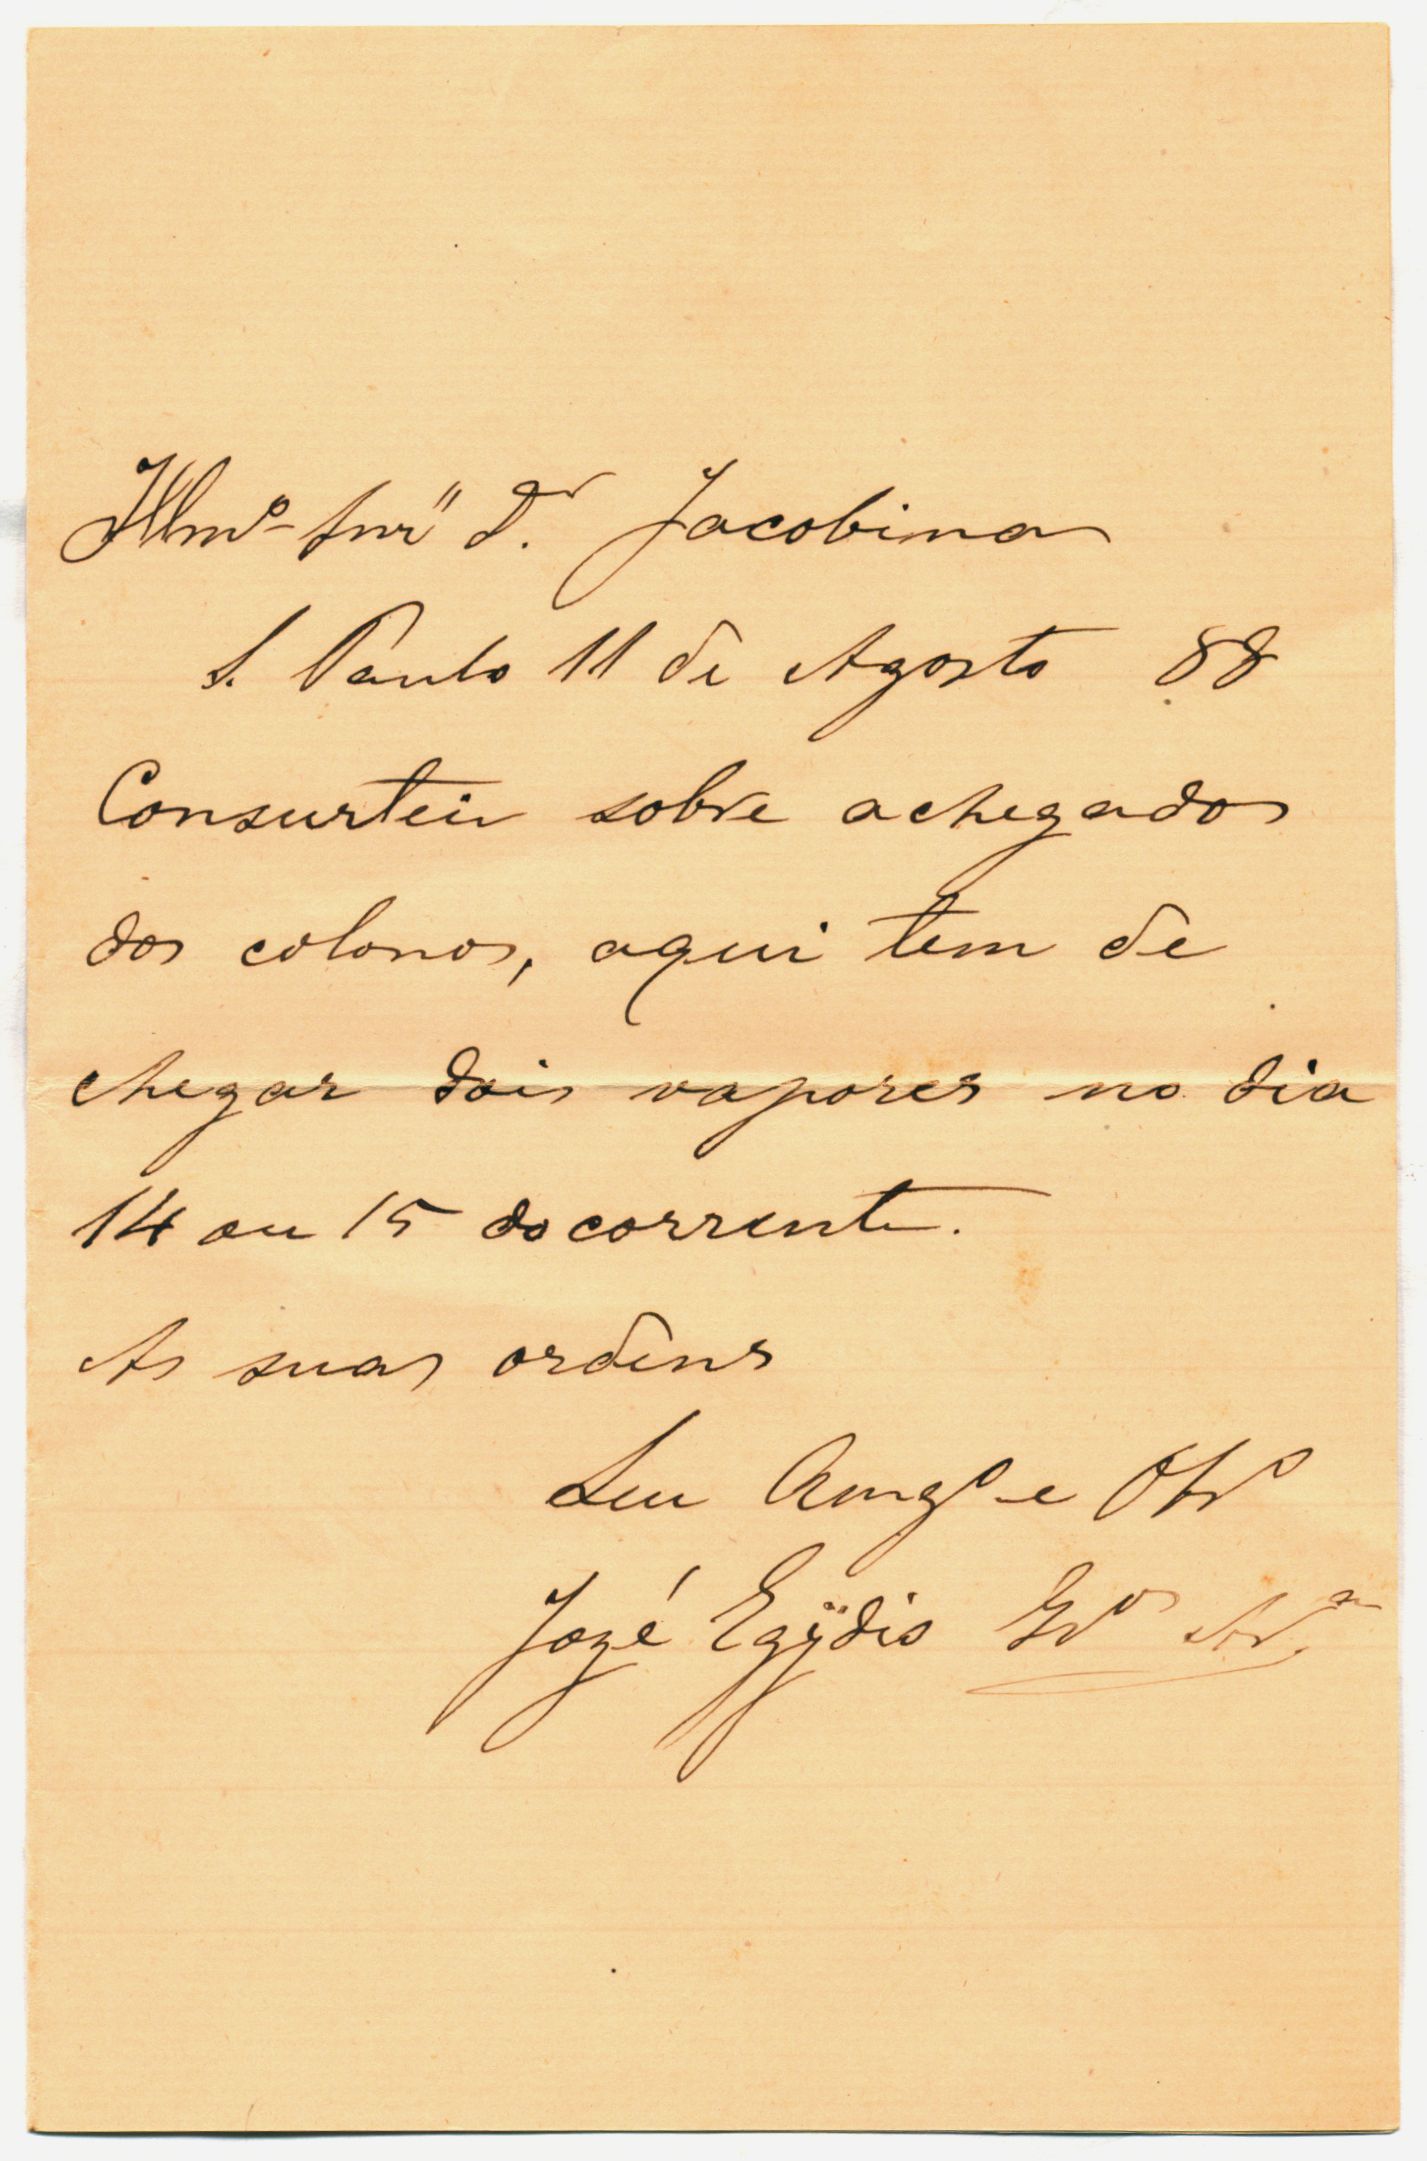 Illmº Snr" Dr. Jacobina
S. Paulo 11 de Agosto 88
Consurtei sobre achegada
dos colonos, aqui tem de
chegar dois vapores no dia
14 ou 15 do corrente.
As suas ordens
Seu Amgº e
Jozé Egÿdio